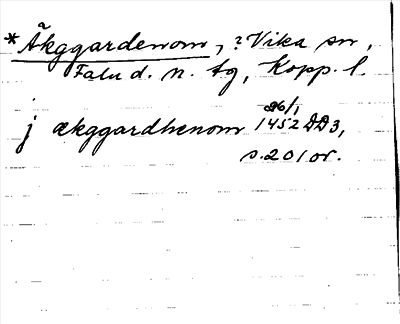 *Ãkggardenom, ? Vika sn,
Falu d. n. tg, Kopp. l.
j ækggardhenom 26/1 1452 DD3,
s. 201 or.